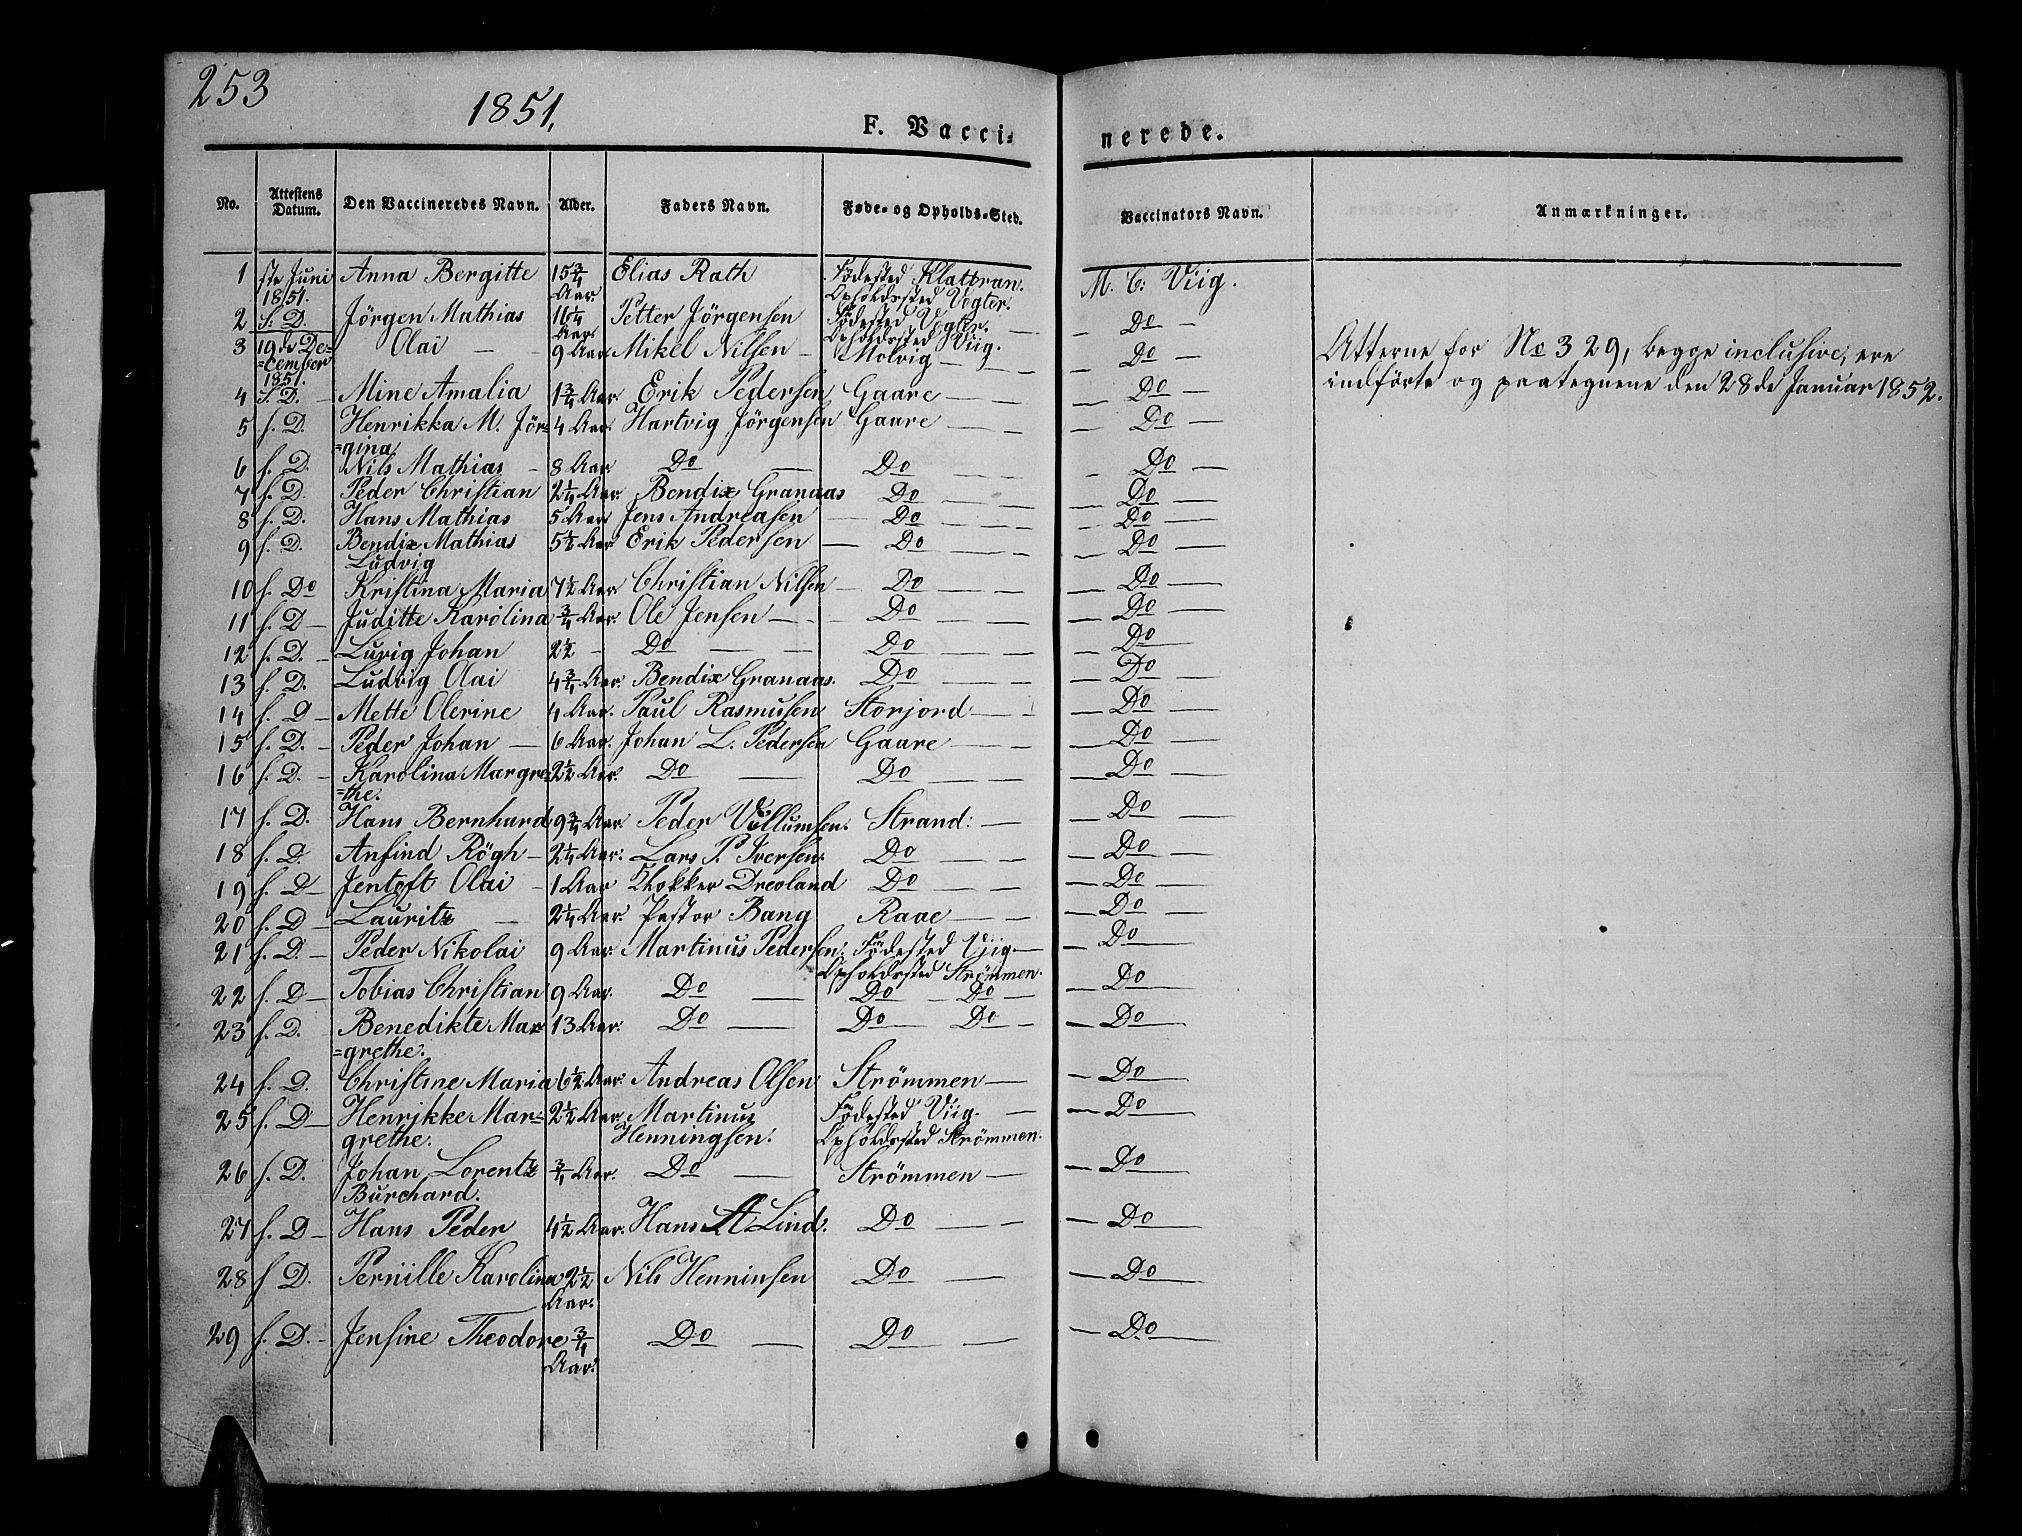 253
1851.
F. Vacci- nerede.
No. | Attestens Datum. | Den Vaccineredes Navn. | Alder. | Faders Navn. | Føde- og Opholds-Sted. | Vaccinators Navn. | Anmærkninger.
1 | ste Juni 1851. | Anna Bergitte | 15 3/4 Aar. | Elias Rath | Födested Klattran. Opholdssted Vogter. | M. C. Viig.
2 | s. D. | Jörgen Mathias | 16 1/4 Aar. | Petter Jörgensen | Födested Vogter. Opholdssted Viig. | Do
3 | 19de De=cember 1851. | Olai | 9 Aar. | Mikel Nilsen | Molvig | Do | Atterne for No 3 29, begge inclusive, ere
indförte og paategnene den 28de Januar 1852.
4 | s. D. | Mine Amalia | 1 3/4 Aar. | Erik Pedersen | Gaare | Do
5 | s. D. | Henrikka M. Jör=gina. | 4 Aar. | Hartvig Jörgensen | Gaare | Do
6 | s. D. | Nils Mathias | 8 Aar | Do | Do | Do
7 | s. D. | Peder Christian | 2 1/4 Aar. | Bendix Granaas | Do | Do
8 | s. D. | Hans Mathias | 5 Aar | Jens Andreasen | Do | Do
9 | s. D. | Bendix Mathias Ludvig | 5 1/2 Aar | Erik Pedersen | Do | Do
10 | s. Do | Kristina Maria | 7 1/2 Aar. | Christian Nilsen | Do | Do
11 | s. D | Juditte Karolina | 3/4 Aar. | Ole Jensen | Do | Do
12 | s. D. | Lurig Johan | 2 1/2 | Do | Do | Do
13 | s. D. | Ludvig Olai | 4 3/4 Aar. | Bendix Granaas. | Do | Do
14 | s. D | Mette Olerine | 4 Aar. | Paul Rasmusen | Storjord | Do
15 | s. D. | Peder Johan | 6 Aar. | Johan L. Pedersen | Gaare | Do
16 | s. D. | Karolina Margre=the. | 2 1/2 Aar. | Do | Do | Do
17 | s. D. | Hans Bernhard | 9 3/4 Aar. | Peder Vullumsen. | Strand: | Do
18 | s. D. | Anfind Rögh | 2 1/4 Aar. | Lars P. Iversen. | Do | Do
19 | s. D | Jentoft Olai | 1 Aar | Thokker Dreoland | Do | Do
20 | s. D | Lauritz | 2 1/4 Aar | Pastor Bang | Raae | Do
21 | s. D. | Peder Nikolai | 9 Aar. | Martinus Pedersen. | Födested Viig Opholdssted Strömmen. | Do
22 | s. D | Tobias Christian | 9 Aar. | Do | Do Do | Do
23 | s. D. | Benedikte Mar=grethe. | 13 Aar. | Do | Do Do | Do
24 | s. D. | Christine Maria | 6 1/2 Aar. | Andreas Olsen. | Strömmen | Do
25 | s. D | Henrikke Mar=grethe. | 2 1/2 Aar. | Martinus Henningsen. | Födested Viig. Opholdssted Strömmen. | Do
26 | s. D. | Johan Lorentz Burchard. | 3/4 Aar. | Do | Strömmen | Do
27 | s. D | Hans Peder | 4 1/2 Aar. | Hans A Lind. | Do | Do
28 | s D. | Pernille Karolina | 2 1/2 Aar. | Nils Henninsen | Do | Do
29 | s. D. | Jensine Theodore | 3/4 Aar. | Do | Do | Do